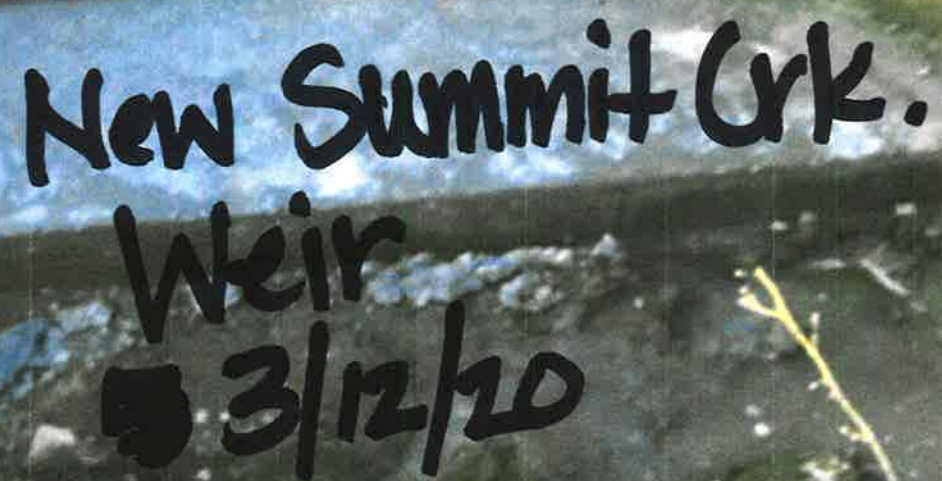 New Summit Crk.
Weir
3/12/20